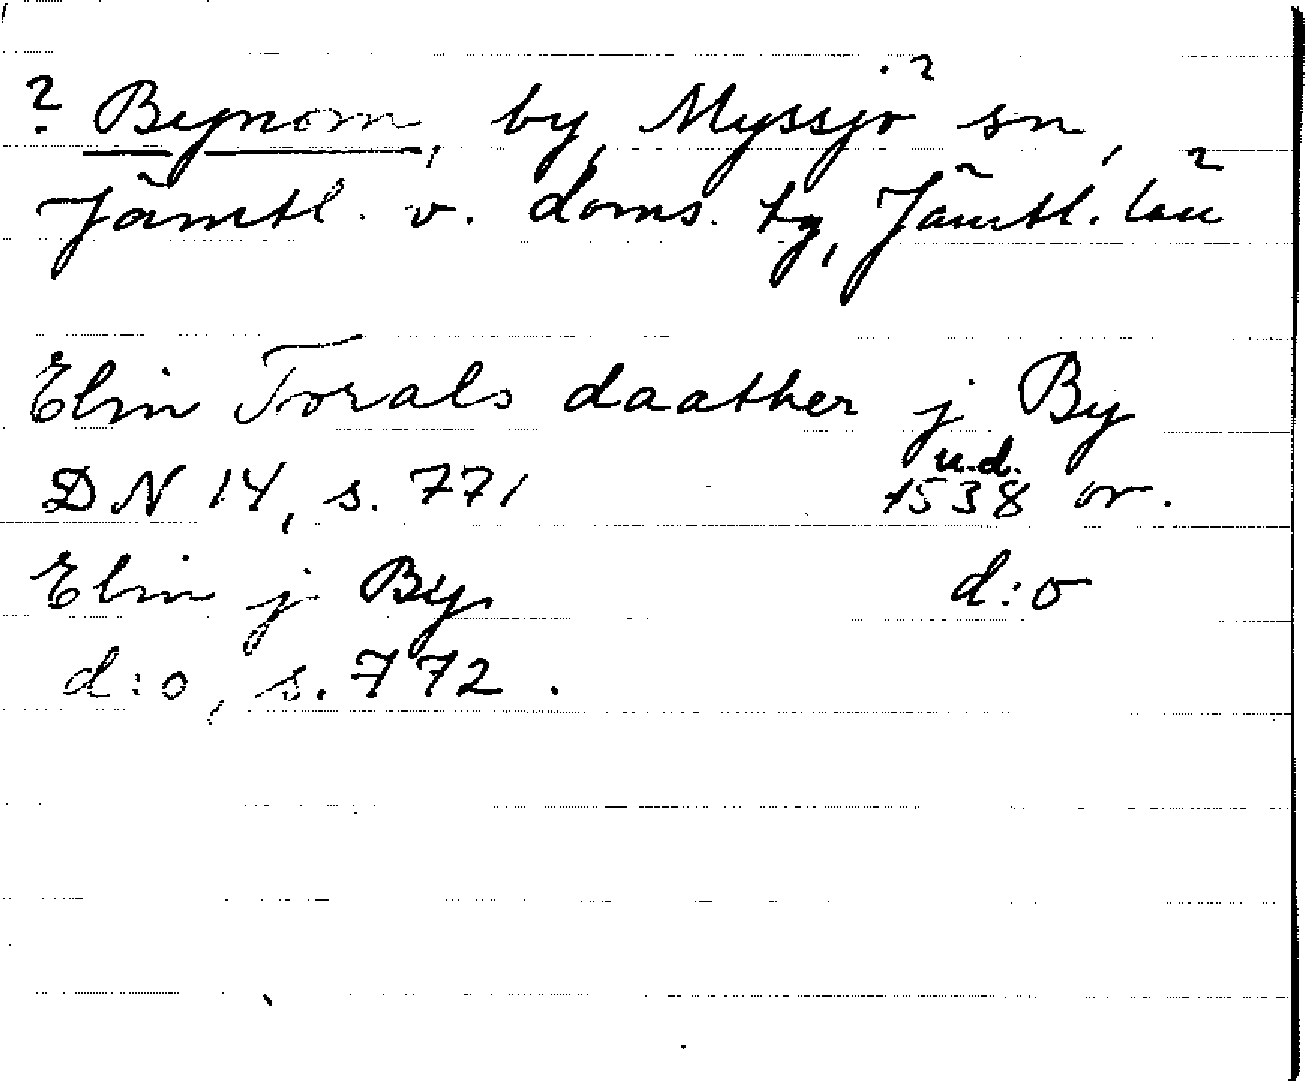 ? Bynom, by, Myssjö sn,
Jämtl. v. doms. tg, Jämtl. län
Elin Torals daather j By
DN 14, s. 771 u.d. 1538 or.
Elin j By d:o
d:o, s. 772.